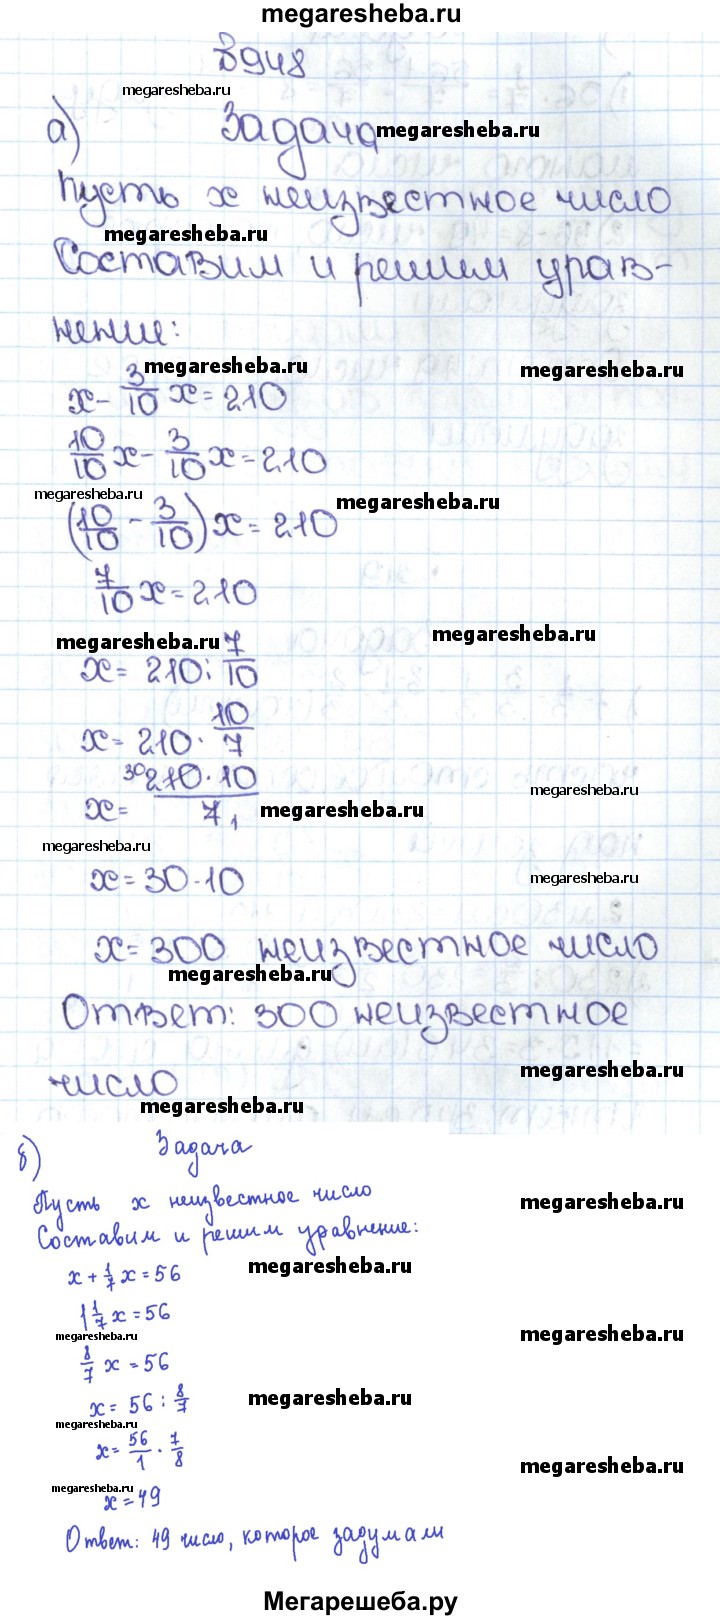 megaresheba.ru
В948
megaresheba.ru
а) Задача megaresheba.ru
Пусть x неизвестное число
megaresheba.ru
Составим и решим урав-
нение:
megaresheba.ru megaresheba.ru
x - 3/10 x = 210
10/10 x - 3/10 x = 210
megaresheba.ru megaresheba.ru
(10/10 - 3/10) x = 210
7/10 x = 210
megaresheba.ru megaresheba.ru
x = 210 : 7/10
x = 210 · 10/7
x = 30 210 · 10 / 7 1
megaresheba.ru megaresheba.ru
megaresheba.ru
x = 30 · 10 megaresheba.ru
x = 300 неизвестное число
megaresheba.ru
Ответ: 300 неизвестное
megaresheba.ru
число
megaresheba.ru
б) Задача
Пусть x неизвестное число megaresheba.ru
Составим и решим уравнение:
x + 1/7 x = 56 megaresheba.ru
1 1/7 x = 56
megaresheba.ru megaresheba.ru
8/7 x = 56
x = 56 : 8/7 megaresheba.ru
megaresheba.ru
x = 56/1 · 7/8 megaresheba.ru
megaresheba.ru
x = 49
Ответ: 49 число, которое задумали
Мегарешеба.ру